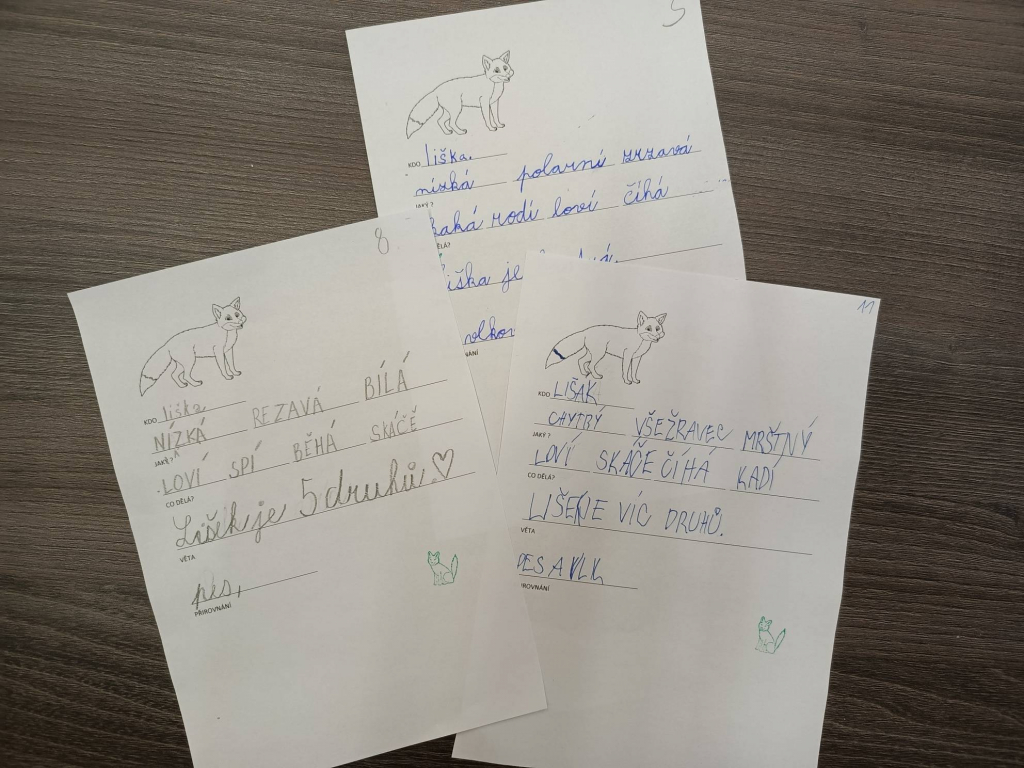 5
KDO liška.
nízká polarní zrzavá
JAKÝ?
kaká rodí loví číhá
DĚLÁ?
liška je
volkov
NÁNÍ
8
KDO liška
NÍZKÁ REZAVÁ BÍLÁ
JAKÝ?
LOVÍ SPÍ BĚHÁ SKÁČĚ
CO DĚLÁ?
Lišek je 5 druhů.♡
VĚTA
pes,
PŘIROVNÁNÍ
11
KDO LIŠAK
CHYTRÝ VŠEŽRAVEC MRŠTNÝ
JAKÝ?
LOVÍ SKÁČE ČÍHÁ KADÍ
CO DĚLÁ?
LIŠEK JE VÍC DRUHŮ.
VĚTA
PES A VLK
IROVNÁNÍ